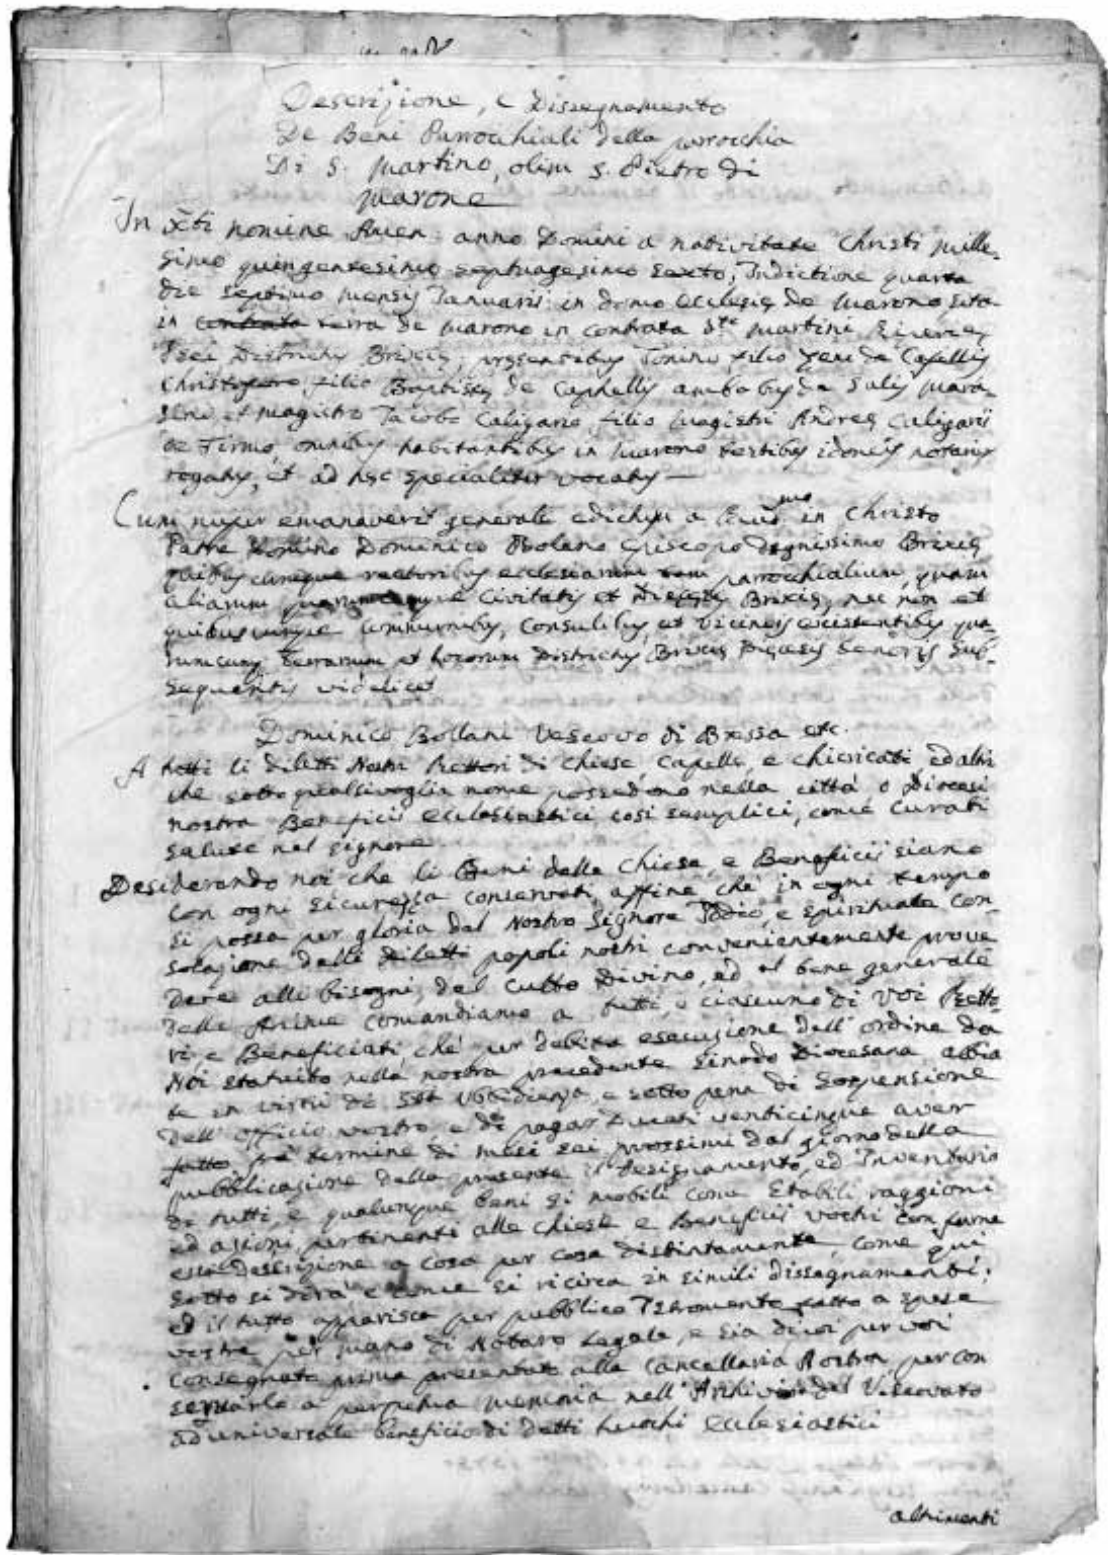 Descrizione, e Dissegnamento
De Beni Parrochiali della parrochia
Di S. Martino, olim S. Pietro di
Marone
In Xti nomine Amen. anno Domini a nativitate Christi mille-
simo quingentesimo septuagesimo sexto, Indictione quarta
die septimo mensis Januarii in domo ecclesię de Marono sita
in contrata terra de Marono in contrata Sti Martini Riperię
Isei Districtus Brixię, pręsentibus Tonino filio de Capellis
Christoforo filio Baptistę de Caphellis ambobus de Salis Mara-
sini, et magistro Jacobo Caligario filio magistri Andreę Caligarii
de Firmo, omnibus habitantibus in Marono testibus idoneis notariis
rogatis, et ad hęc specialiter vocatis —
Cum nuper emanaverit generale edictum a in Christo
Patre Domino Dominico Bolano Episcopo dignissimo Brixię
quibuscumque rectoribus ecclesiarum tam parrochialium, quam
aliarum quarumcumque Civitatis et Diocęsis Brixię, nec non et
quibuscumque communibus, Consulibus, et Vicineis existentibus qua-
rumcumq terrarum et locorum Districtus Brixię Dięcesis tenoris sub-
sequentis videlicet
Dominico Bollani Vescovo di Bressa etc.
A tutti li diletti Nostri Rettori di Chiese, Capelle, e chiericati ed altri
che sotto qualsivoglia nome possedono nella città o Diocesi
nostra Beneficii ecclesiastici così semplici, come Curati
salute nel signore
Desiderando noi che li Beni delle Chiese, e Beneficii siano
con ogni sicurezza conservati, affine che in ogni tempo
si possa per gloria del Nostro Signore Iddio, e spirituale con-
solazione delli diletti popoli nostri convenientemente prove
dere alli bisogni, del culto Divino, ed al bene generale
delle Anime comandiamo a tutti, e ciascuno di Voi Retto-
ri e Beneficiati, che per debita esecuzione dell' ordine da
Noi statuito nella nostra precedente Sinodo Diocesana, abbia
te in virtù di Sta Ubbidienza, e sotto pena di sospensione
dell' officio vostro e di pagar Ducati venticinque aver
fatto fra termine di mesi sei prossimi dal giorno della
pubblicazione della presente il designamento, ed Inventario
di tutti, e qualunque beni si mobili come stabili raggioni
ed azioni pertinenti alle Chiese e Beneficii vostri con farne
essa descrizione a cosa per cosa distintamente, come qui
sotto si dirà e come si ricirca in simili dissegnamenti;
ed il tutto apparisca per pubblico Istromento fatto a spese
vostre per mano di Notaro Legale, e sia di voi per voi
consegnato prima presentato alla Cancellaria Nostra per con
servarlo a perpetua memoria nell' Archivio del Vescovato
ad universale beneficio di detti luochi ecclesiastici
altrimenti